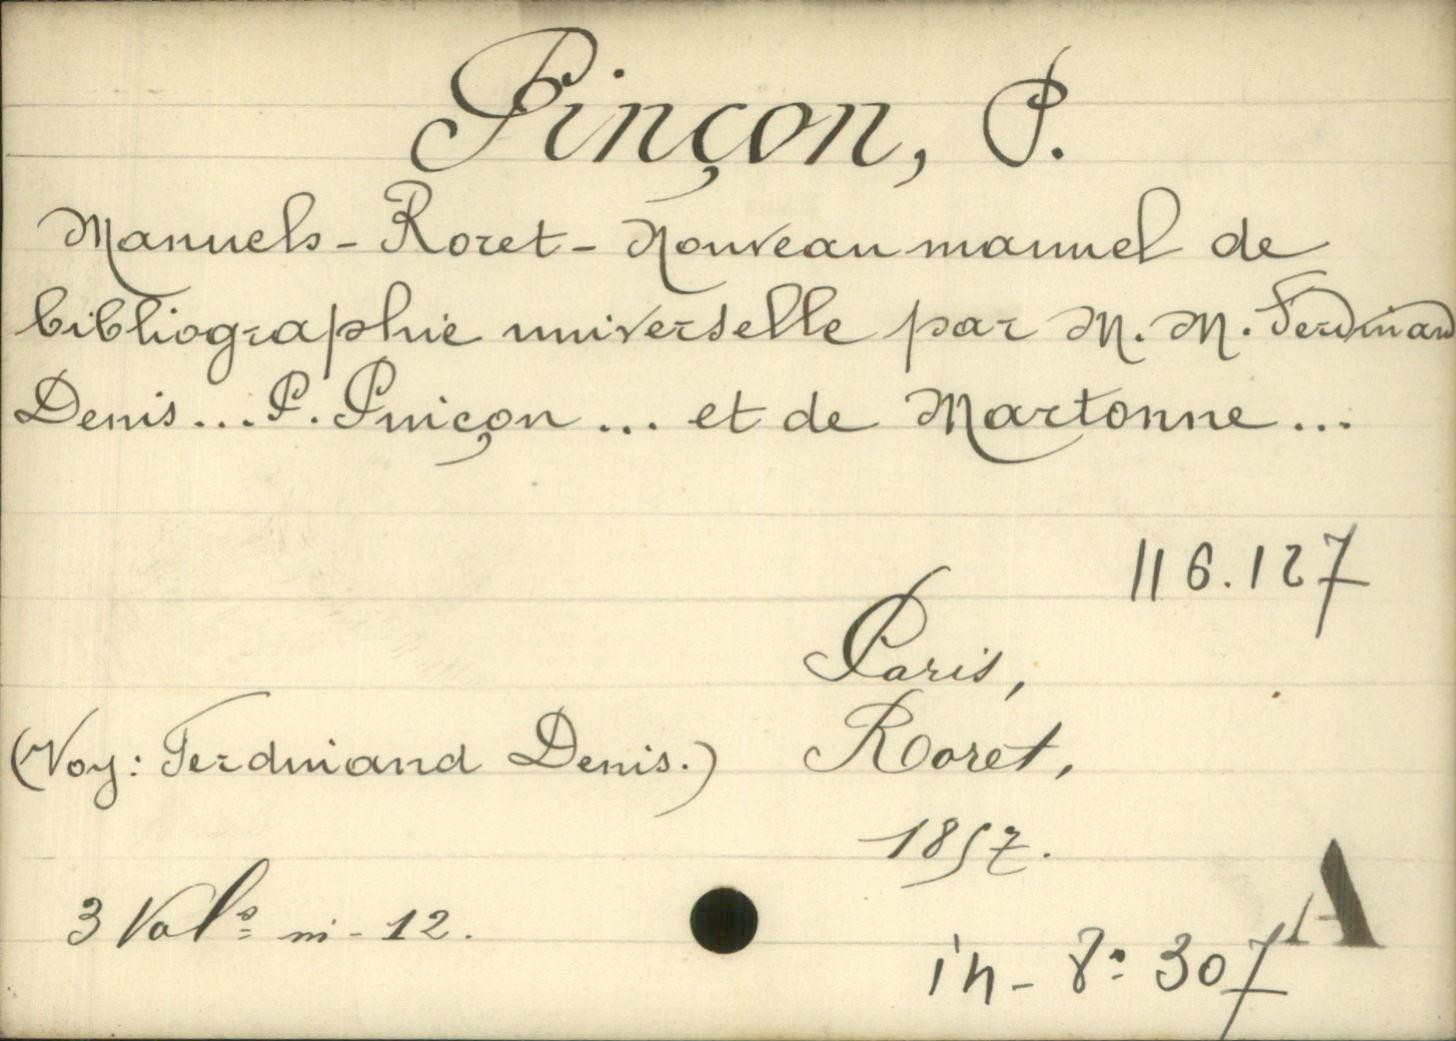 Pinçon, P.
Manuels-Roret-Nouveau manuel de
bibliographie universelle par M. M. Ferdinand
Denis... P. Pinçon... et de Martonne...
116.127
Paris,
(Voy: Ferdinand Denis.) Roret,
1857.
3 Vols in-12.
in-8º 307 A